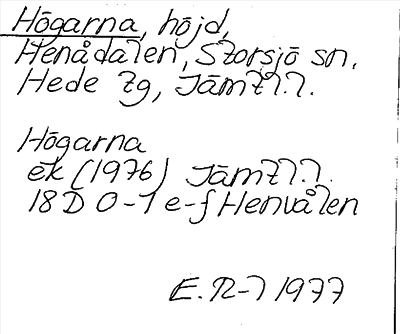 Högarna, höjd,
Henådalen, Storsjö sn,
Hede tg, Jämtl.
Högarna
ek (1976) Jämtl.
18 D 0-1 e-f Henvålen
E. R-7 1977